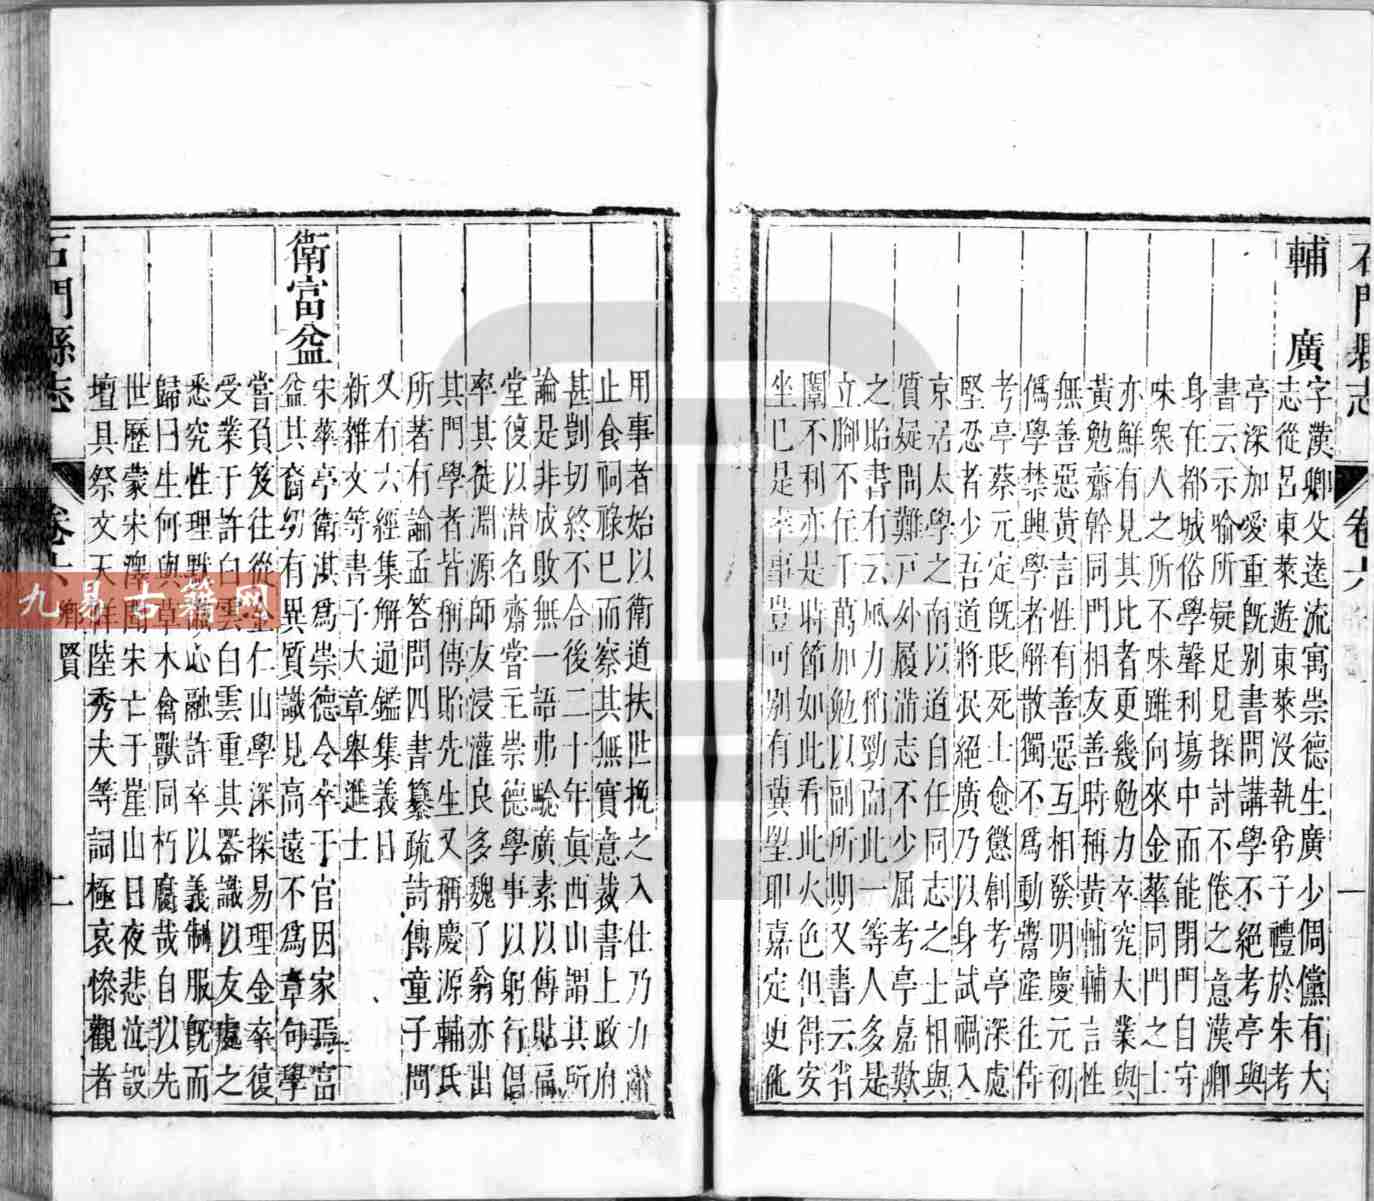 石門縣志
卷六
一
輔　廣
字漢卿父逵流寓崇德生廣少倜儻有大
志從呂東萊遊東萊沒執弟子禮於朱考
亭深加愛重旣別書問講學不絕考亭與
書云示喻所疑足見探討不倦之意漢卿
身在都城俗學聲利塲中而能閉門自守
味衆人之所不味雖向來金華同門之士
亦鮮有見其比者更幾勉力卒究大業與
黃勉齋幹同門相友善時稱黃輔輔言性
無善惡黃言性有善惡互相發明慶元初
僞學禁興學者解散獨不爲動鬻産往侍
考亭蔡元定旣貶死士愈懲創考亭深處
堅忍者少吾道將泯絕廣乃以身試禍入
京居太學之南以道自任同志之士相與
質疑問難戸外履滿志不少屈考亭嘉歎
之貽書有云風力稍勁而此一等人多是
立脚不住千萬加勉以副所期又書云省
闈不利亦是時節如此看此火色但得安
坐已是幸事豈可別有冀望耶嘉定更化
用事者始以衛道扶世挽之入仕乃力辭
止食祠祿已而察其無實意裁書上政府
甚剴切終不合後二十年眞西山謂其所
論是非成敗無一語弗驗廣素以傳貽扁
堂復以潜名齋嘗主崇德學事以躬行倡
率其徒淵源師友浸灌良多魏了翁亦出
其門學者皆稱傳貽先生又稱慶源輔氏
所著有論孟答問四書纂疏詩傳童子問
又有六經集解通鑑集義日
新雜文等書子大章舉進士
衛富益
宋華亭衛淇爲崇德令卒于官因家焉富
益其裔幼有異質識見高遠不爲章句學
當負笈往從金仁山學深探易理金卒復
受業于許白雲白雲重其器識以友處之
悉究性理默識心融許卒以義制服旣而
歸曰生何與草木禽獸同朽腐哉自以先
世歷蒙宋澤聞朱亡于崖山日夜悲泣設
壇具祭文天祥陸秀夫等詞極哀慘觀者
石門縣志
卷六
鄕賢
二
九易古籍网